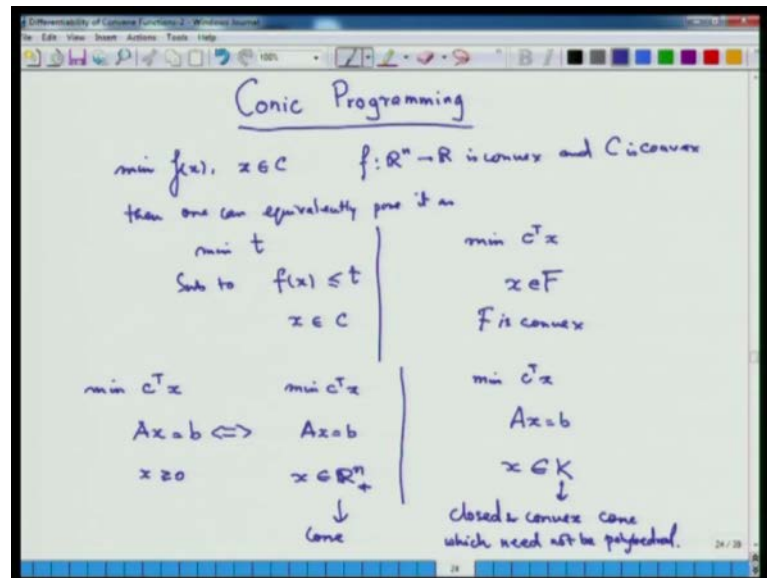 Differentiability of Convex Functions-2 - Windows Journal
File Edit View Insert Actions Tools Help
100%
B I
Conic Programming
min f(x), x ∈ C f: ℝⁿ → ℝ is convex and C is convex
then one can equivalently pose it as
min t
Sub to f(x) ≤ t
x ∈ C
min cᵀx
x ∈ F
F is convex
min cᵀx
Ax = b <=>
x ≥ 0
min cᵀx
Ax = b
x ∈ ℝⁿ₊
↓
Cone
min cᵀx
Ax = b
x ∈ K
↓
closed & convex cone
which need not be polyhedral.
24 / 28
24